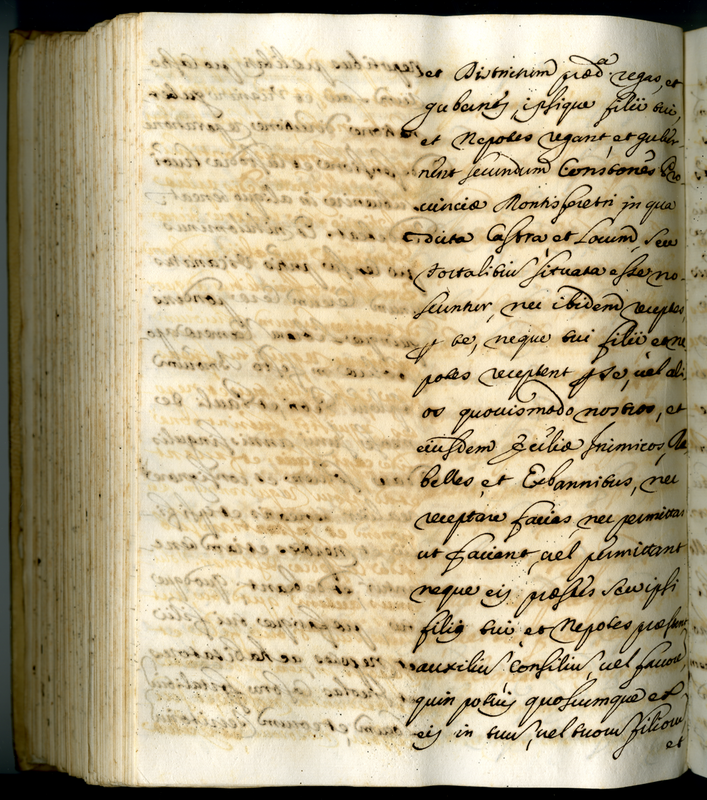 et Districtum præd.ᵃ regas, et
gubernes, ipsique filii tui,
et Nepotes regant, et guber-
nent secundum Constõnes Pro-
vinciæ Montisferetri in qua
dicta Castra, et Locum, seu
fortalitius situata esse no-
scuntur, nec ibidem receptes
te, neque tui filii et ne
potes receptent se, vel ali-
os quovismodo nostros, et
eiusdem Ecclīæ Inimicos, Re
belles, et Exbannitus, nec
receptare facias, nec permittas
ut faciant, vel permittant
neque eis præstes seu ipsi
filij tui et Nepotes præstent
auxiliũ, consiliũ, vel favorẽ
quin potius quoscumque ex
eis in tuũ, vel tuorũ filiorũ
et